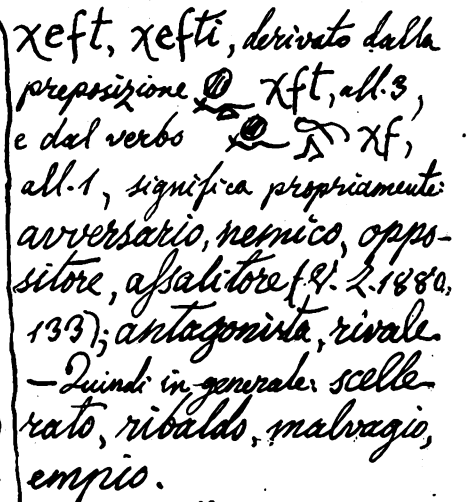 χeft, χefti, derivato dalla
preposizione χft, all. 3,
e dal verbo χf,
all. 1, significa propriamente:
avversario, nemico, oppo-
sitore, assalitore (V. Z. 1880,
133); antagonista, rivale.
— Quindi in generale: scelle
rato, ribaldo, malvagio,
empio.